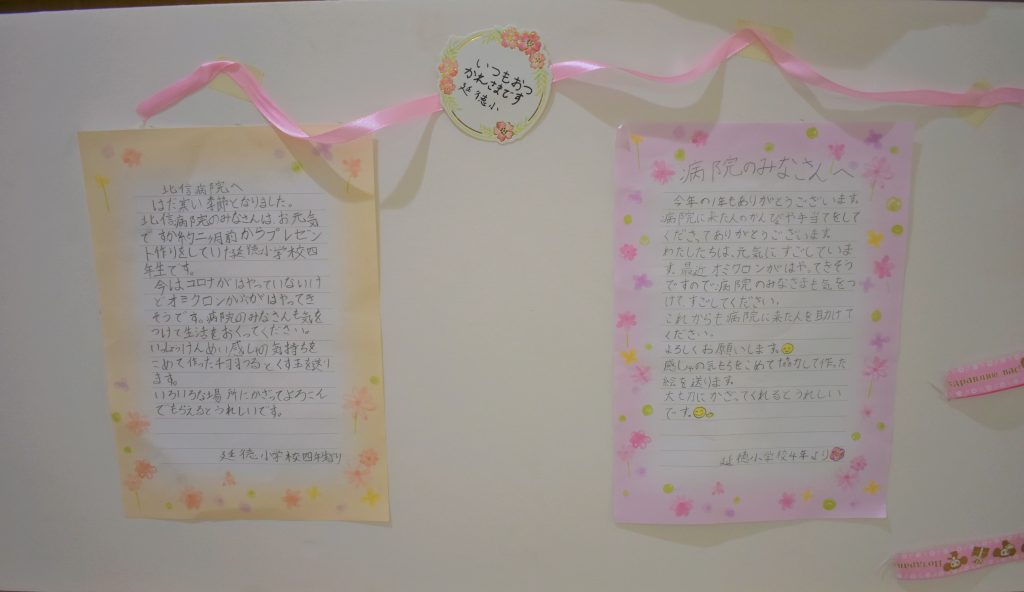 いつもおつ
かれさまです
延徳小
北信病院へ
はだ寒い季節となりました。
北信病院のみなさんは、お元気
ですか約二ヶ月前からプレゼン
ト作りをしていた延徳小学校四
年生です。
今はコロナがはやっていないけ
どオミクロンかぶがはやってき
そうです。病院のみなさんも気を
つけて生活をおくってください。
いっしょうけんめい感しゃの気持ちを
こめて作った千羽づるとくす玉を送り
ます。
いろいろな場所にかざってよろこん
でもらえるとうれしいです。
延徳小学校四年生より
病院のみなさんへ
今年の1年もありがとうございます。
病院に来た人のかんびょうや手当てをして
くださってありがとうございます
わたしたちは、元気にすごしていま
す。最近オミクロンがはやってきそう
ですので病院のみなさまも気をつ
けて、すごしてください。
これからも病院に来た人を助けて
ください。
よろしくお願いします。
感しゃの気もちをこめて協力して作った
絵を送ります。
大切にかざってくれるとうれしい
です。
延徳小学校4年より